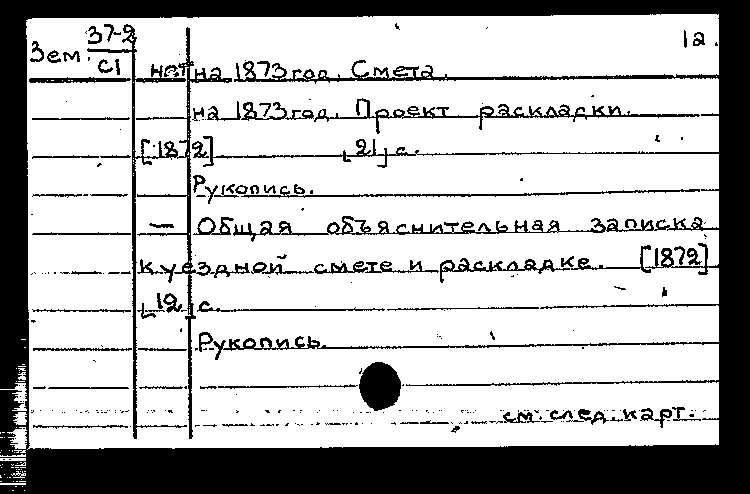 Зем. 37-2 1а.
С1 нет на 1873 год. Смета.
на 1873 год. Проект раскладки.
[1872] [21] с.
Рукопись.
— Общая объяснительная записка
к уездной смете и раскладке. [1872]
[12] с.
Рукопись.
см. след. карт.